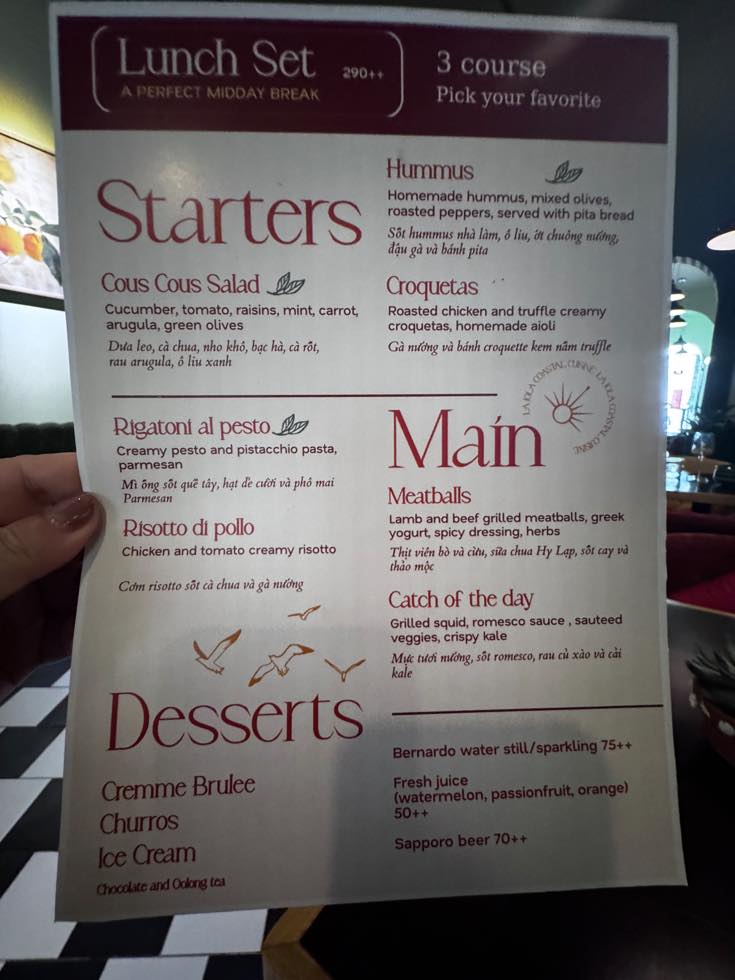 Lunch Set 290++
A PERFECT MIDDAY BREAK
3 course
Pick your favorite
Starters
Cous Cous Salad
Cucumber, tomato, raisins, mint, carrot,
arugula, green olives
Dưa leo, cà chua, nho khô, bạc hà, cà rốt,
rau arugula, ô liu xanh
Hummus
Homemade hummus, mixed olives,
roasted peppers, served with pita bread
Sốt hummus nhà làm, ô liu, ớt chuông nướng,
đậu gà và bánh pita
Croquetas
Roasted chicken and truffle creamy
croquetas, homemade aioli
Gà nướng và bánh croquette kem nấm truffle
LA JOLA COASTAL CUISINE LA JOLA COASTAL CUISINE
Main
Rigatoni al pesto
Creamy pesto and pistacchio pasta,
parmesan
Mì ống sốt quế tây, hạt dẻ cười và phô mai
Parmesan
Risotto di pollo
Chicken and tomato creamy risotto
Cơm risotto sốt cà chua và gà nướng
Meatballs
Lamb and beef grilled meatballs, greek
yogurt, spicy dressing, herbs
Thịt viên bò và cừu, sữa chua Hy Lạp, sốt cay và
thảo mộc
Catch of the day
Grilled squid, romesco sauce , sauteed
veggies, crispy kale
Mực tươi nướng, sốt romesco, rau củ xào và cải
kale
Desserts
Cremme Brulee
Churros
Ice Cream
Chocolate and Oolong tea
Bernardo water still/sparkling 75++
Fresh juice
(watermelon, passionfruit, orange)
50++
Sapporo beer 70++